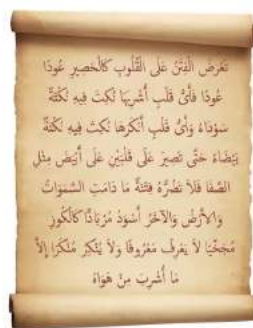 تُعْرَضُ الْفِتَنُ عَلَى الْقُلُوبِ كَالْحَصِيرِ عُودًا
عُودًا فَأَىُّ قَلْبٍ أُشْرِبَهَا نُكِتَ فِيهِ نُكْتَةٌ
سَوْدَاءُ وَأَىُّ قَلْبٍ أَنْكَرَهَا نُكِتَ فِيهِ نُكْتَةٌ
بَيْضَاءُ حَتَّى تَصِيرَ عَلَى قَلْبَيْنِ عَلَى أَبْيَضَ مِثْلِ
الصَّفَا فَلاَ تَضُرُّهُ فِتْنَةٌ مَا دَامَتِ السَّمَوَاتُ
وَالأَرْضُ وَالآخَرُ أَسْوَدُ مُرْبَادًّا كَالْكُوزِ
مُجَخِّيًا لاَ يَعْرِفُ مَعْرُوفًا وَلاَ يُنْكِرُ مُنْكَرًا إِلاَّ
مَا أُشْرِبَ مِنْ هَوَاهُ